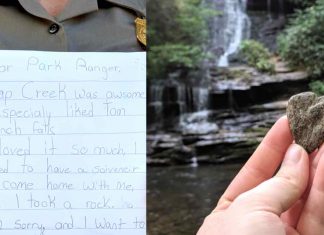 ar Park Ranger,
ap Creek was awsome
specialy liked Tom
nch falls
loved it so much, I
ed to have a soivenir
come home with me,
I took a rock.
sorry, and I want to